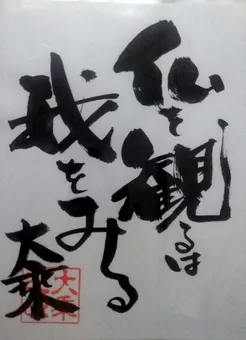 仏を観るは
我をみる
大乗
大乗